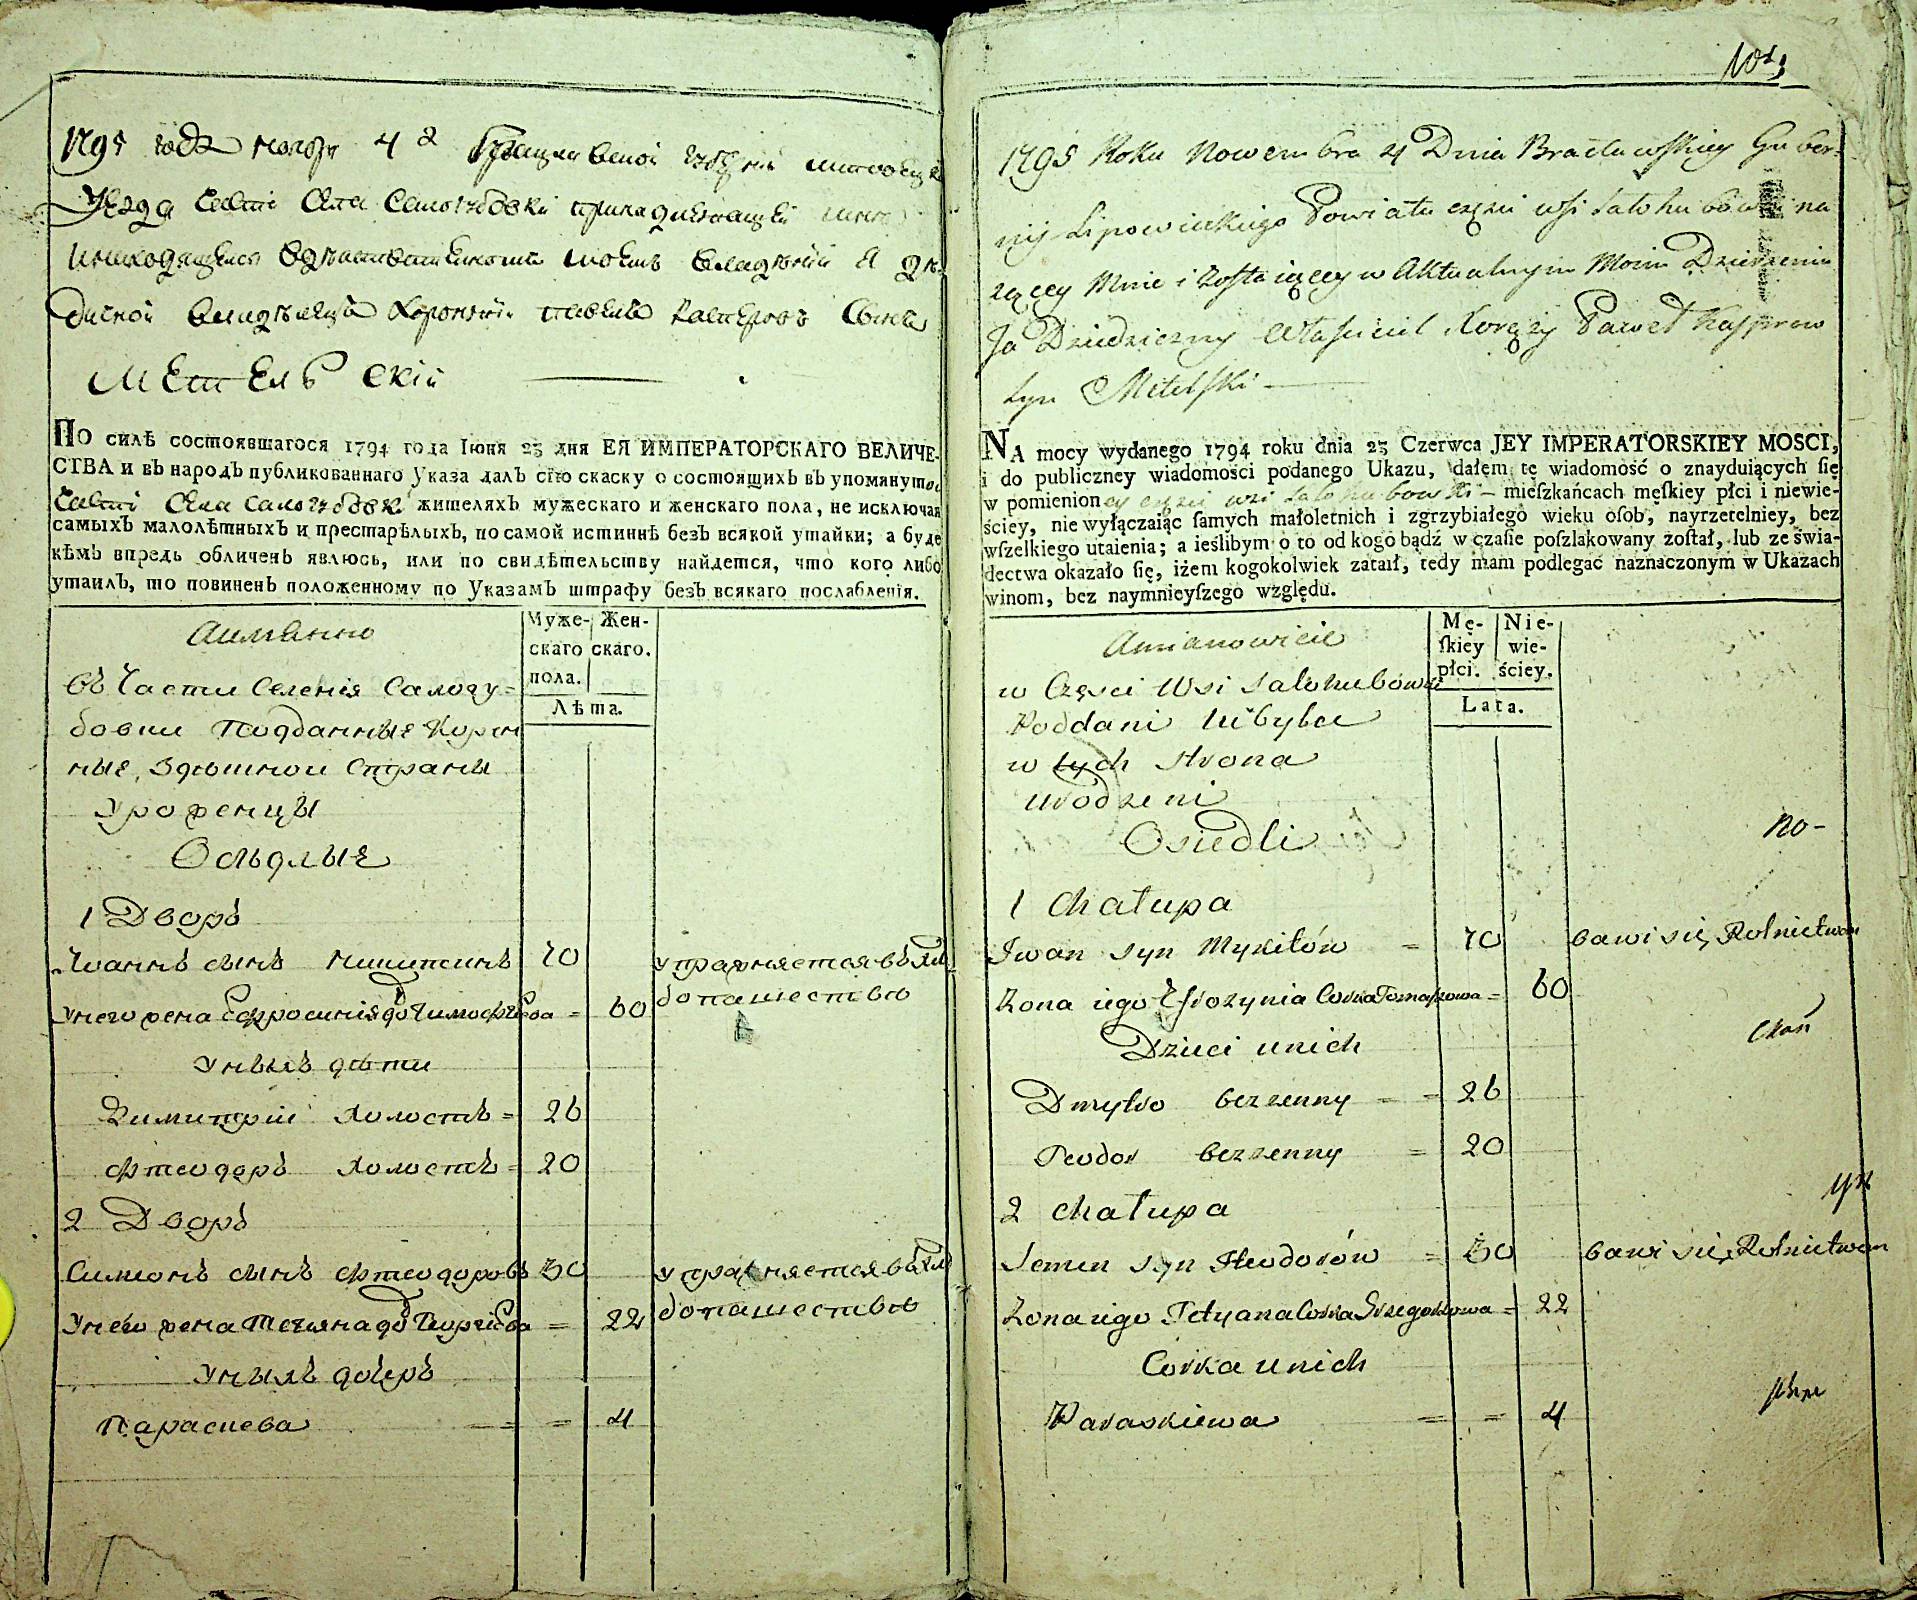 1795 года ноября 4 д Брацлавской губернии Липовецкого
уезда части села Сологубовки принадлежащей мне
и находящейся в действительном моем владении я де-
дичной владелец Хоронжий Павел Касперов сын
Метельский
По силѣ состоявшагося 1794 года Іюня 23 дня ЕЯ ИМПЕРАТОРСКАГО ВЕЛИЧЕ-
СТВА и въ народъ публикованнаго Указа далъ сію скаску о состоящихъ въ упомянутой
части села Сологубовки жителяхъ мужескаго и женскаго пола, не исключая
самыхъ малолѣтныхъ и престарѣлыхъ, по самой истиннѣ безъ всякой утайки; а буде
кѣмъ впредь обличенъ явлюсь, или по свидѣтельству найдется, что кого либо
утаилъ, то повиненъ положенному по Указамъ штрафу безъ всякаго послабленія.
Аименно
Муже- Жен-
скаго скаго.
пола.
Лѣта.
въ Части Селенія Салогу=
бовки Подданные Корен
ные, Здѣшной Страны
Уроженцы
Осѣдлые
1 Дворъ
Иоаннъ сынъ Никитинъ 70 упражняется въ хлѣ
Унего жена Ефросинія до Тимофѣева = 60 бопашествѣ
Унихъ дѣти
Димитрій холостъ = 26
Фтеодоръ холостъ = 20
2 Дворъ
Симеонъ сынъ Фтеодоровъ 30 упражняется въ хлѣ
Унего жена Тетяна до Георгіева = 22 бопашествѣ
Унихъ дочеръ
Параскева = = 4
1795 Roku Nowembra 4 Dnia Bracławskiey Guber-
nij Lipowieckiego Powiatu części wsi Sałohubowki na
leżącey Mnie i zostaiącey w Aktualnym Moim Dzierżeniu
Ja Dziedziczny Właściciel Korąży Paweł Kasprow
syn Mitelski
NA mocy wydanego 1794 roku dnia 23 Czerwca JEY IMPERATORSKIEY MOSCI,
i do publiczney wiadomości podanego Ukazu, dałem tę wiadomość o znayduiących się
w pomienioney części wsi Sałohubowki mieſzkańcach męſkiey płci i niewie-
ściey, nie wyłączaiąc ſamych małoletnich i zgrzybiałego wieku oſob, nayrzetelniey, bez
wſzelkiego utaienia; a ieślibym o to od kogo bądź w czaſie poſzlakowany zoſtał, lub ze świa-
dectwa okazało ſię, iżem kogokolwiek zataił, tedy mam podlegać naznaczonym w Ukazach
winom, bez naymnieyſzego względu.
Amianowicie
Mę- Nie-
ſkiey wie-
płci. ściey.
Lata.
w Części Wsi Sałohubowki
Poddani
w tych strona
urodzeni
Osiedli
no-
1 Chałupa
Iwan syn Mykitów = 70 bawi się Rolnictwem
Zona iego Efrozynia Corka Tomaszowa = 60
Dzieci unich
Dmytro bezzenny = = 26
Teodor bezzenny = 20
2 Chałupa
Semen syn Fteodorów = 30 bawi się Rolnictwem
Zona iego Tetyana Corka Grzegorzowa = 22
Corka unich
Paraskiewa = = 4